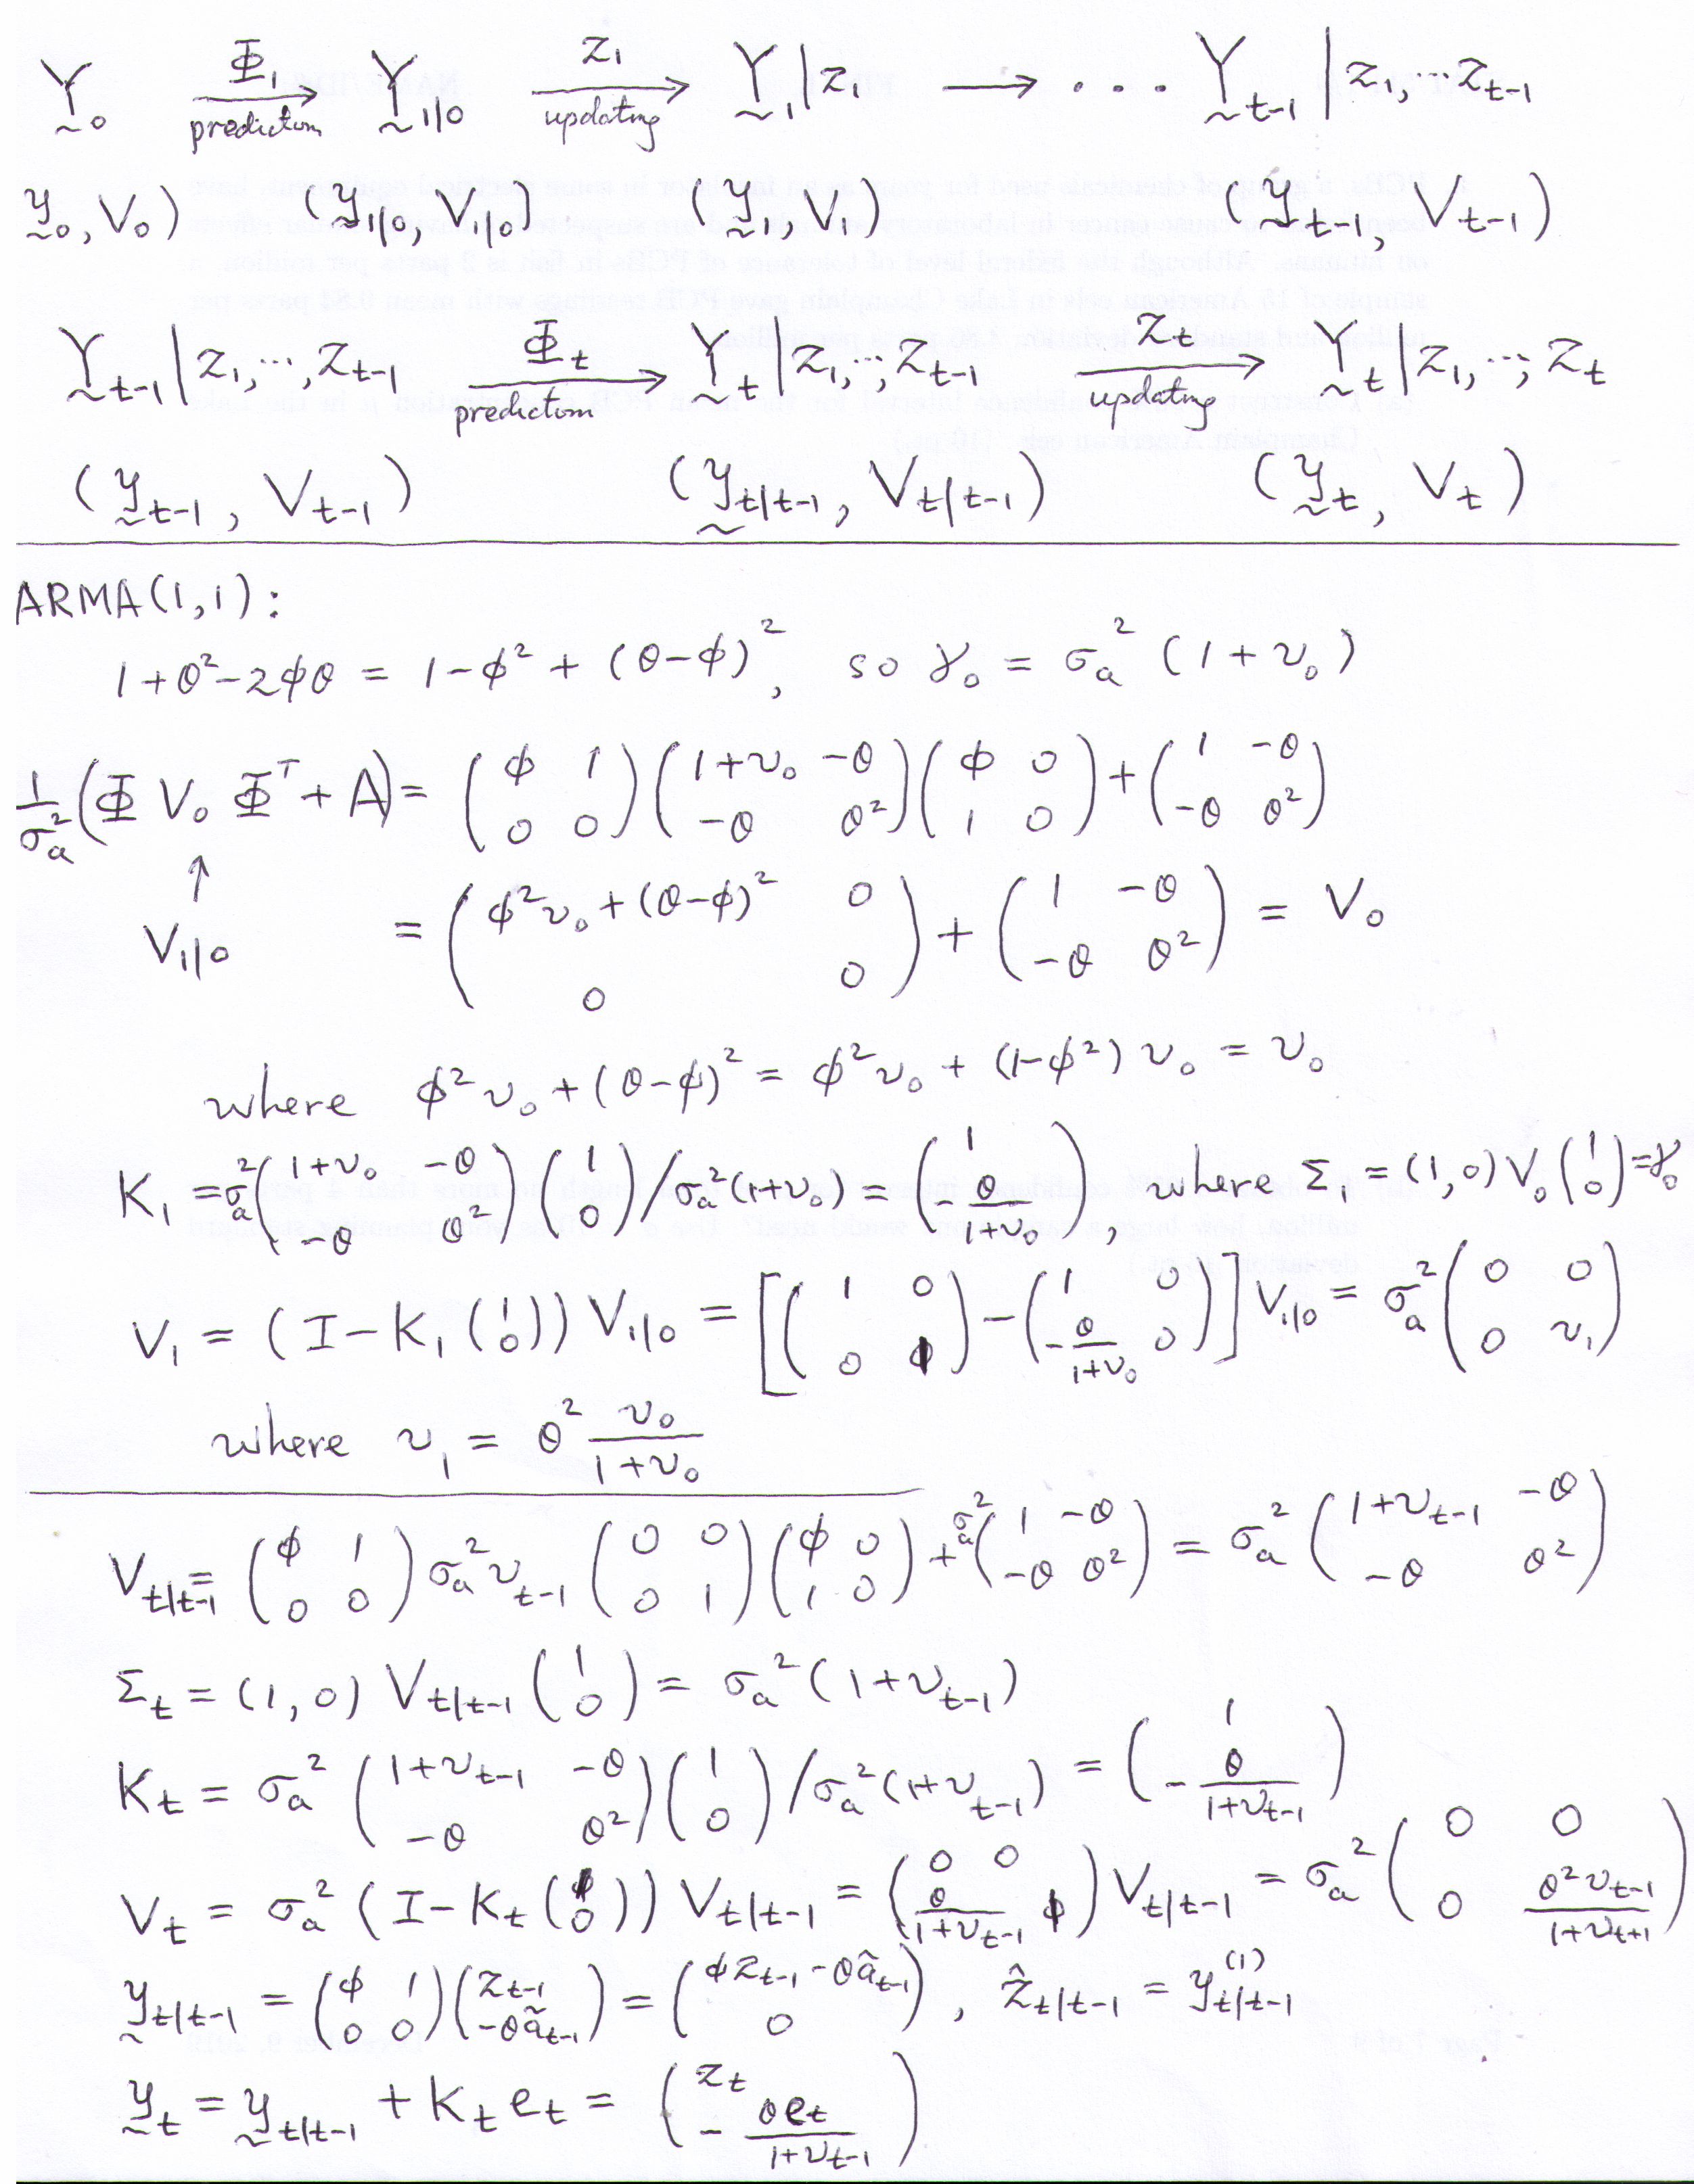 Y̰₀ —Φ₁ prediction→ Y̰₁|₀ —z₁ updating→ Y̰₁|z₁ ⟶ ···· Y̰ₜ₋₁ | z₁, ··· zₜ₋₁
y̰₀, V₀) (y̰₁|₀, V₁|₀) (y̰₁, V₁) (y̰ₜ₋₁, Vₜ₋₁)
Y̰ₜ₋₁ | z₁, ···, zₜ₋₁ —Φₜ prediction→ Y̰ₜ | z₁, ··, zₜ₋₁ —zₜ updating→ Y̰ₜ | z₁, ··, zₜ
(y̰ₜ₋₁, Vₜ₋₁) (y̰ₜ|ₜ₋₁, Vₜ|ₜ₋₁) (y̰ₜ, Vₜ)
ARMA(1,1):
1+θ²-2φθ = 1-φ² + (θ-φ)², so γ₀ = σₐ² (1+v₀)
1/σₐ² (Φ V₀ Φᵀ + A) = (φ 1; 0 0)(1+v₀ -θ; -θ θ²)(φ 0; 1 0) + (1 -θ; -θ θ²)
↑
V₁|₀ = (φ²v₀+(θ-φ)² 0; 0 0) + (1 -θ; -θ θ²) = V₀
where φ²v₀+(θ-φ)² = φ²v₀ + (1-φ²)v₀ = v₀
K₁ = σₐ²(1+v₀ -θ; -θ θ²)(1; 0)/σₐ²(1+v₀) = (1; -θ/(1+v₀)), where Σ = (1,0)V₀(1; 0) = γ₀
V₁ = (I-K₁(1; 0)) V₁|₀ = [(1 0; 0 1) - (1 0; -θ/(1+v₀) 0)] V₁|₀ = σₐ²(0 0; 0 v₁)
where v₁ = θ² v₀/(1+v₀)
Vₜ|ₜ₋₁ = (φ 1; 0 0) σₐ² vₜ₋₁ (0 0; 0 1)(φ 0; 1 0) + σₐ²(1 -θ; -θ θ²) = σₐ² (1+vₜ₋₁ -θ; -θ θ²)
Σₜ = (1,0) Vₜ|ₜ₋₁ (1; 0) = σₐ² (1+vₜ₋₁)
Kₜ = σₐ² (1+vₜ₋₁ -θ; -θ θ²)(1; 0)/σₐ²(1+vₜ₋₁) = (1; -θ/(1+vₜ₋₁))
Vₜ = σₐ² (I-Kₜ(1; 0)) Vₜ|ₜ₋₁ = (0 0; θ/(1+vₜ₋₁) 1) Vₜ|ₜ₋₁ = σₐ² (0 0; 0 θ²vₜ₋₁/(1+vₜ₊₁))
y̰ₜ|ₜ₋₁ = (φ 1; 0 0)(zₜ₋₁; -θãₜ₋₁) = (φzₜ₋₁-θãₜ₋₁; 0), ẑₜ|ₜ₋₁ = yₜ|ₜ₋₁⁽¹⁾
y̰ₜ = y̰ₜ|ₜ₋₁ + Kₜeₜ = (zₜ; -θeₜ/(1+vₜ₋₁))